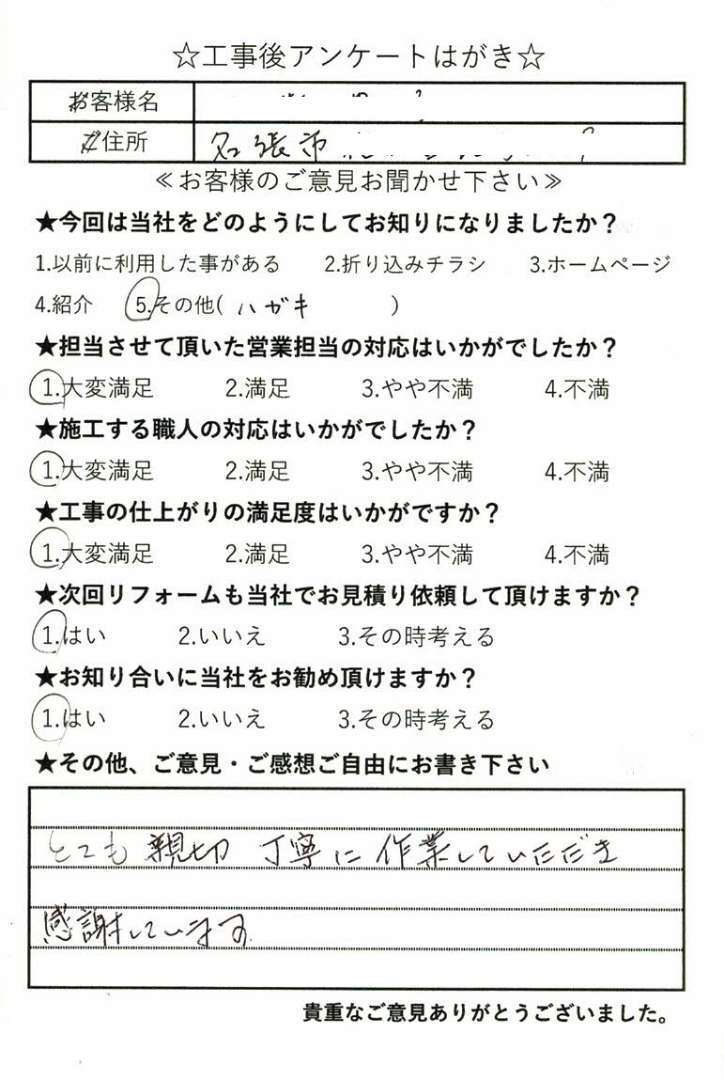 ☆工事後アンケートはがき☆
お客様名
ご住所 名張市
≪お客様のご意見お聞かせ下さい≫
★今回は当社をどのようにしてお知りになりましたか？
1.以前に利用した事がある 2.折り込みチラシ 3.ホームページ
4.紹介 5.その他( ハガキ )
★担当させて頂いた営業担当の対応はいかがでしたか？
1.大変満足 2.満足 3.やや不満 4.不満
★施工する職人の対応はいかがでしたか？
1.大変満足 2.満足 3.やや不満 4.不満
★工事の仕上がりの満足度はいかがですか？
1.大変満足 2.満足 3.やや不満 4.不満
★次回リフォームも当社でお見積り依頼して頂けますか？
1.はい 2.いいえ 3.その時考える
★お知り合いに当社をお勧め頂けますか？
1.はい 2.いいえ 3.その時考える
★その他、ご意見・ご感想ご自由にお書き下さい
とても 親切 丁寧に 作業していただき
感謝しています
貴重なご意見ありがとうございました。